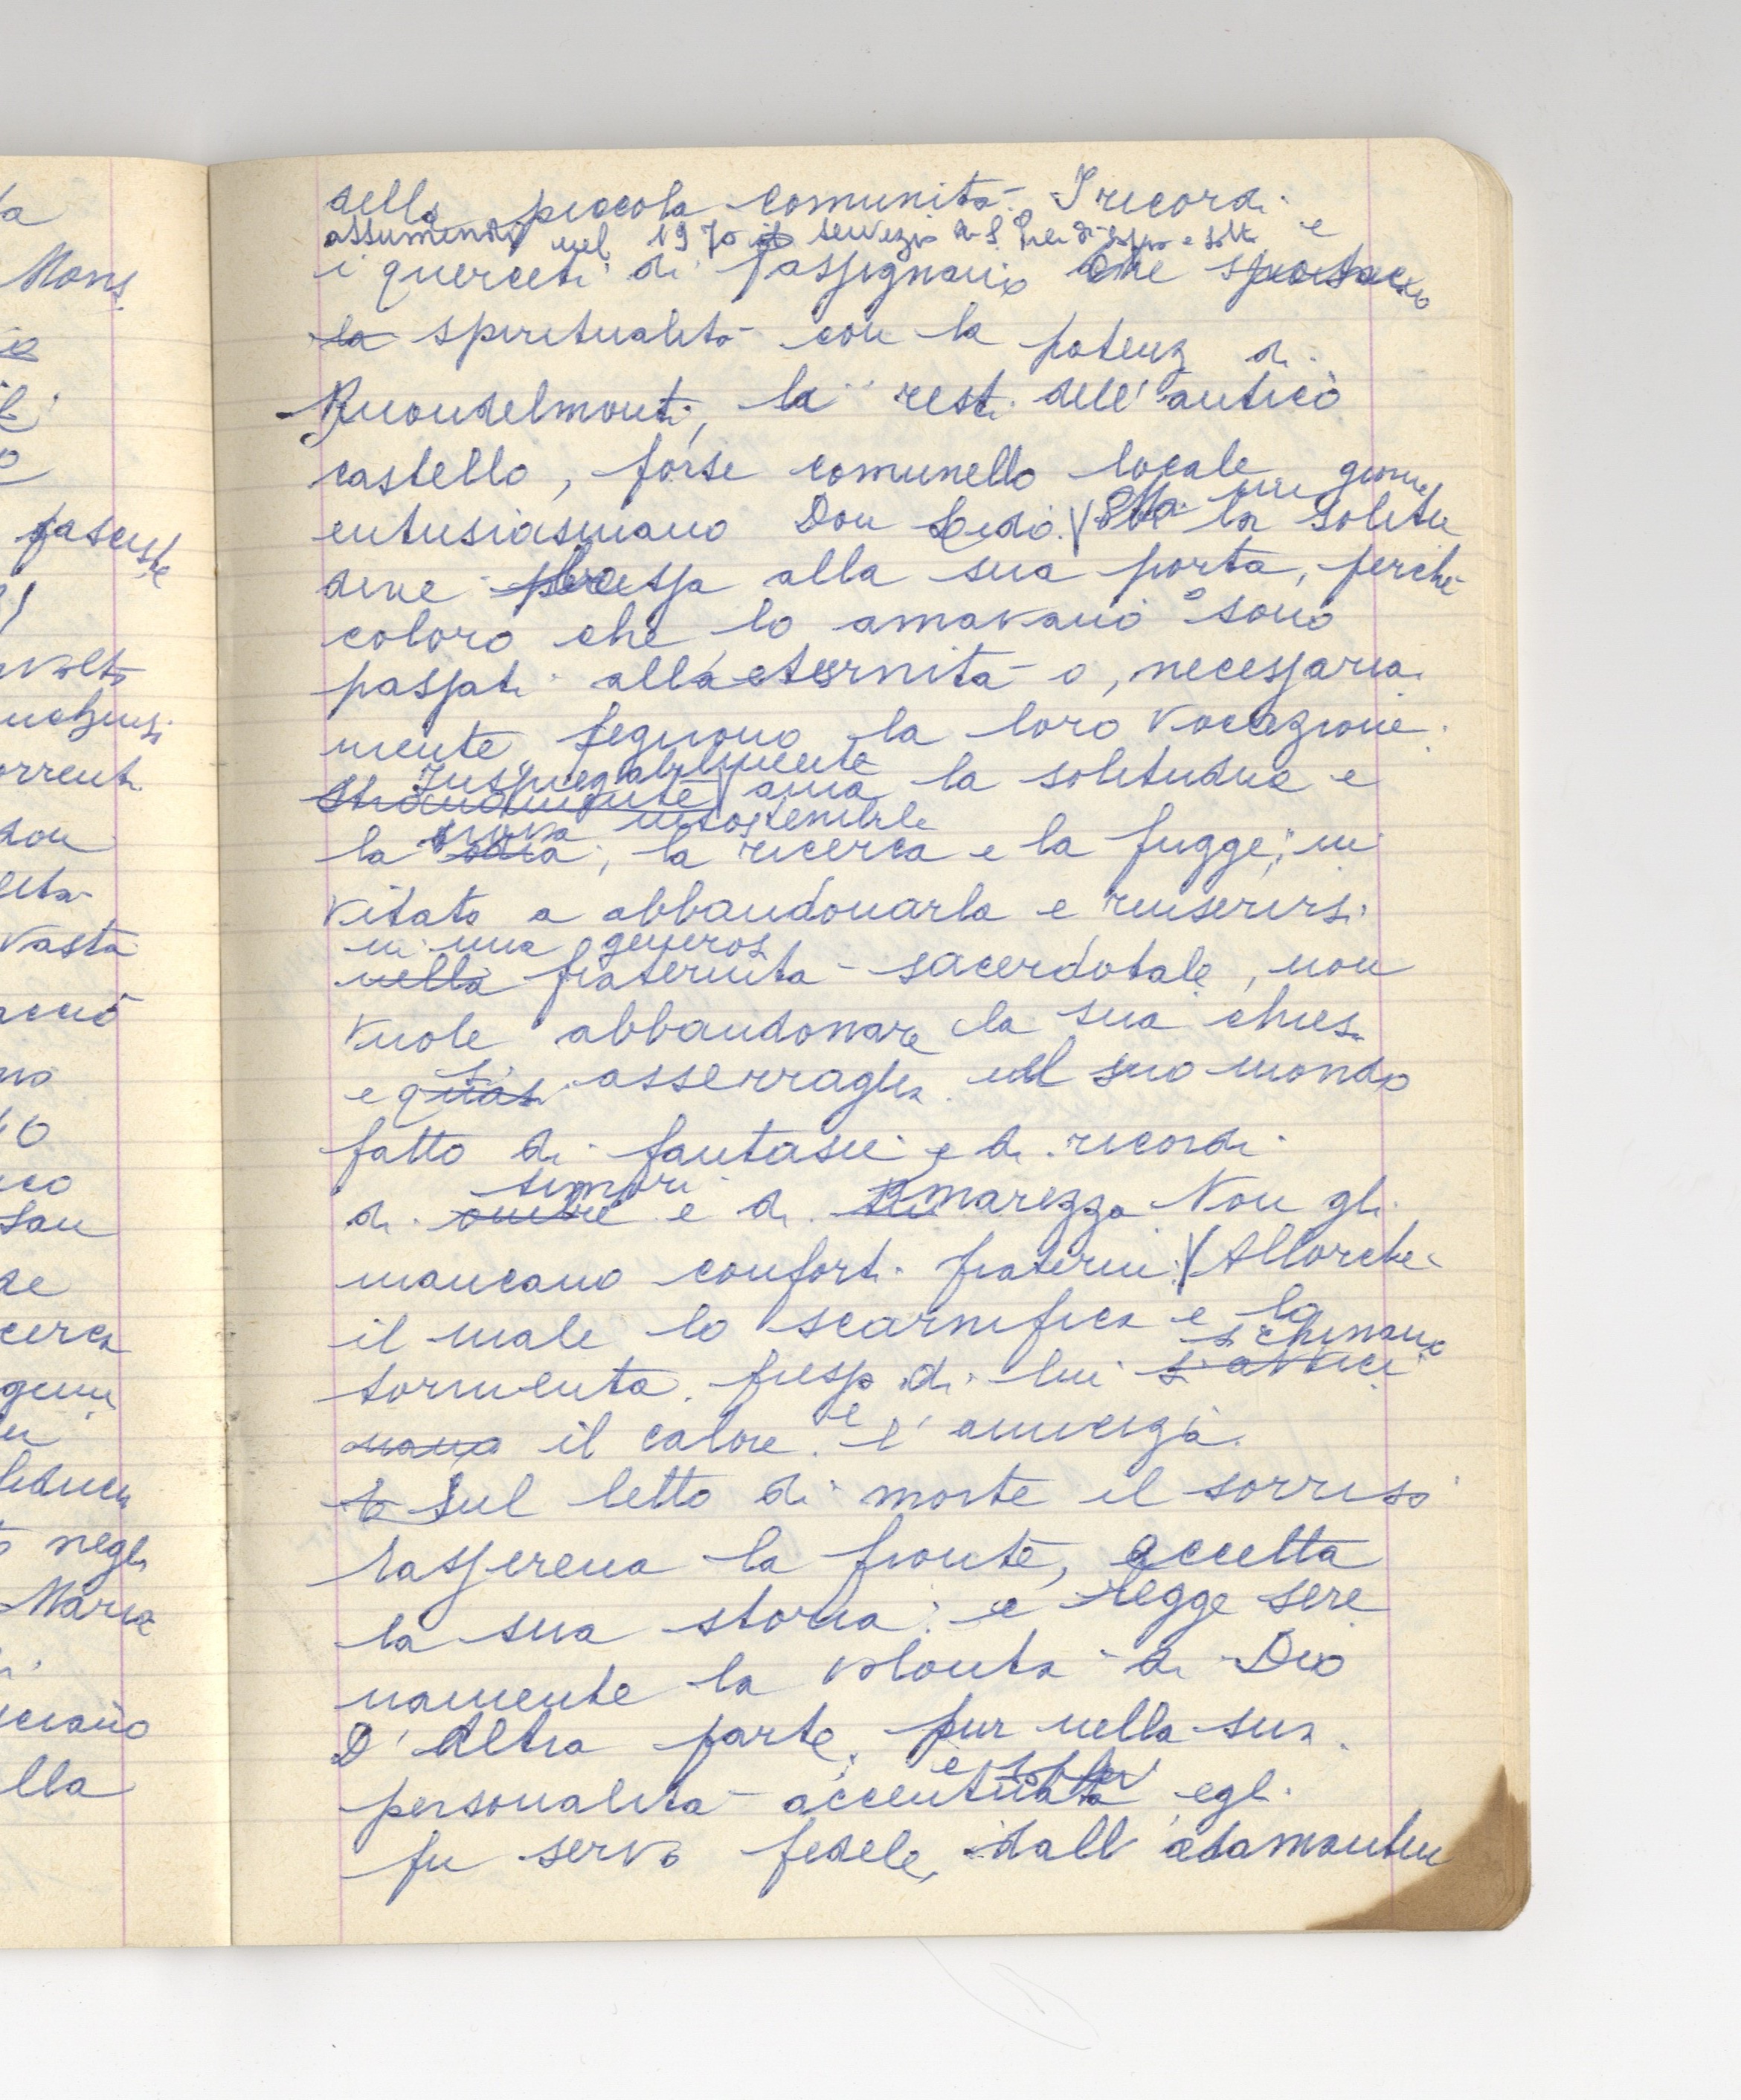 a
Mons.
fasciste
volto
orrenti
don
vasta
no
co
San
se
cerca
negli
Maria
lla
della piccola comunità. I ricordi e
assumendo nel 1970 il servizio di S.
i querceti di Passignano che
la spiritualità con la potenza di
Buondelmonti, la resti dell'antico
castello, forse comunello locale
entusiasmano Don Ledo. Ma un giorno la solitu
dine alla sua porta, perché
coloro che lo amavano sono
passati alla eternità o, necessaria
mente seguono la loro vocazione.
Inspiegabilmente
stranamente ama la solitudine e
prova insostenibile
la odia; la ricerca e la fugge; in
vitato a abbandonarla e reinserirsi
in una generosa
nella fraternità sacerdotale, non
vuole abbandonare la sua chiesa
si
e quasi asserraglia nel suo mondo
fatto di fantasie e di ricordi
timori
di ombre e di amarezza Non gli
mancano conforti fraterni. Allorché
il male lo scarnifica e lo
si chinano
tormenta. su di lui s'avvici
nano il calore e l'amicizia.
E Sul letto di morte il sorriso
rasserena la fronte, accetta
la sua storia: e legge sere
namente la volontà di Dio
D'Altra parte, pur nella sua
personalità accentuata e egli
fu servo fedele, dall'adamantin